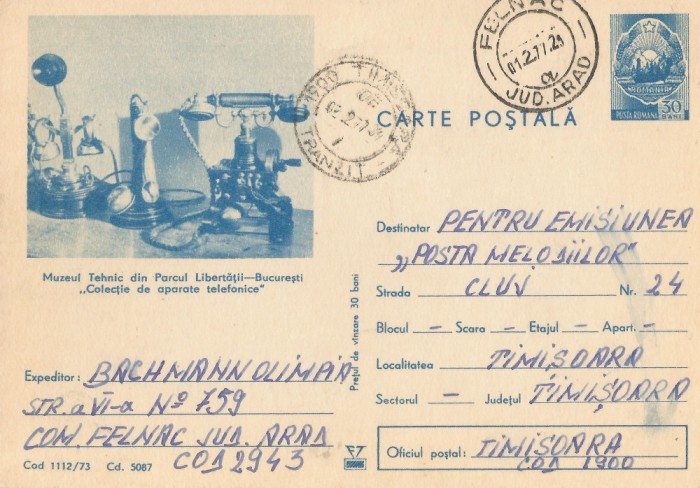 FELNAC
01.2.77.21
a
JUD. ARAD
POSTA ROMANA 30 BANI
1900 TIMIȘOARA
TRANZIT
CARTE POŞTALĂ
Muzeul Tehnic din Parcul Libertăţii—Bucureşti
„Colecţie de aparate telefonice“
Preţul de vînzare 30 bani
Destinatar PENTRU EMISIUNEA
„POSTA MELODIILOR"
Strada CLUJ Nr. 24
Blocul – Scara – Etajul – Apart. –
Localitatea TIMIȘOARA
Sectorul – Judeţul TIMIȘOARA
Oficiul poştal: TIMISOARA
COD 1900
Expeditor: BACHMANN OLIMPIA
STR. a VI-a No 759
COM. FELNAC JUD. ARAD
COD 2943
Cod 1112/73 Cd. 5087